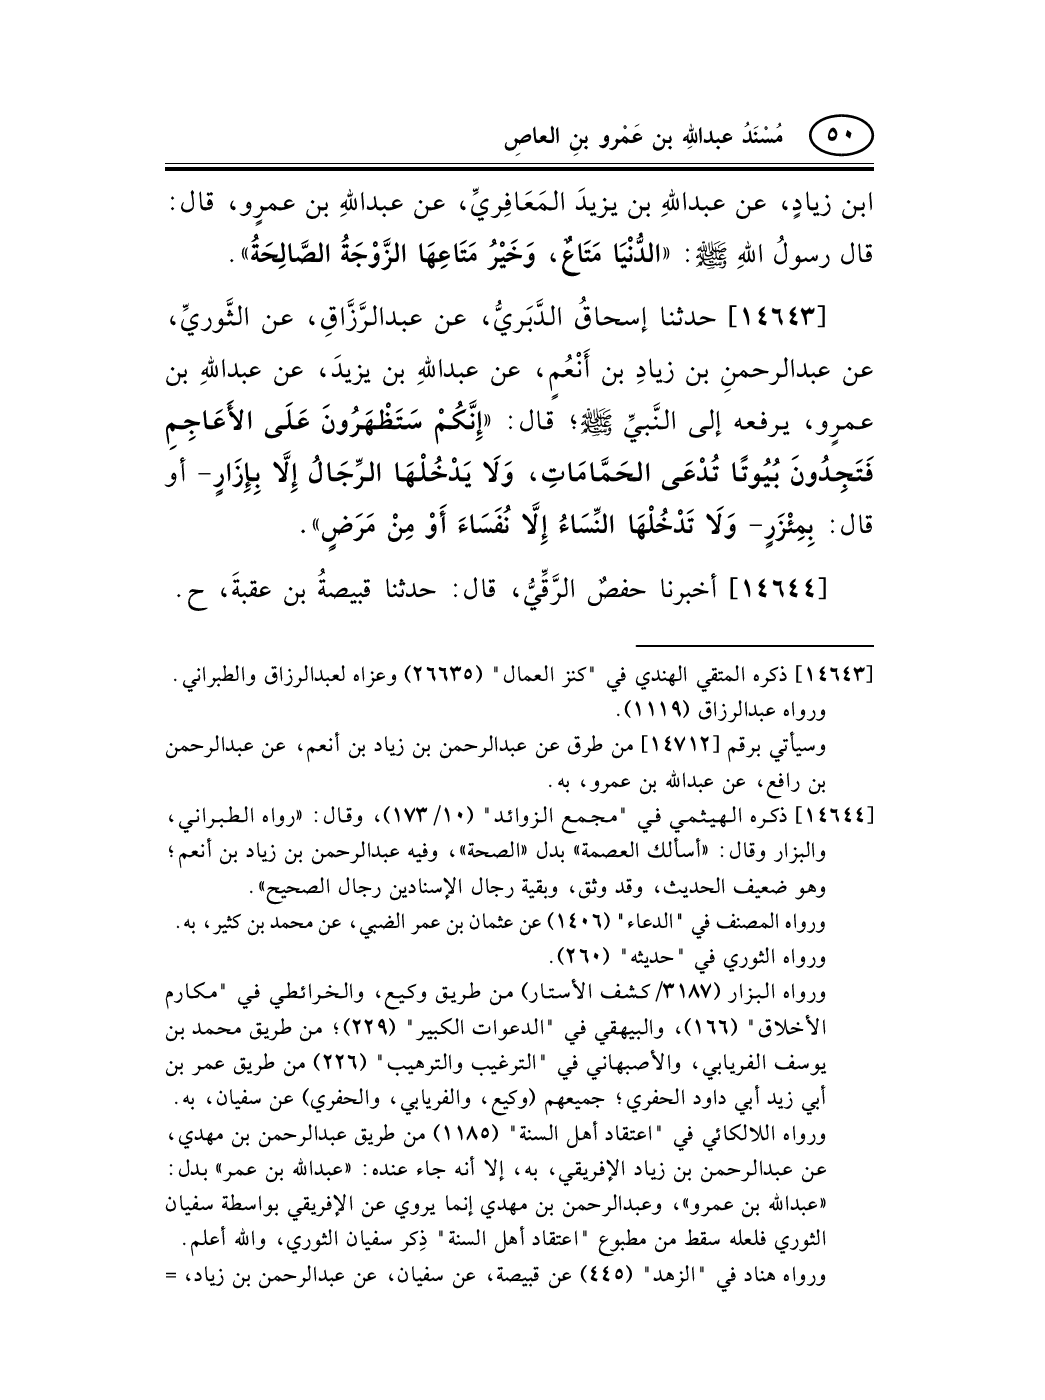 ٥٠ مُسْنَدُ عبداللهِ بن عَمْرو بنِ العاصِ
ابن زيادٍ، عن عبداللهِ بن يزيدَ المَعَافِريِّ، عن عبداللهِ بن عمرٍو، قال:
قال رسولُ اللهِ ﷺ: «الدُّنْيَا مَتَاعٌ، وَخَيْرُ مَتَاعِهَا الزَّوْجَةُ الصَّالِحَةُ».
[١٤٦٤٣] حدثنا إسحاقُ الدَّبَريُّ، عن عبدالرَّزَّاقِ، عن الثَّوريِّ،
عن عبدالرحمنِ بن زيادِ بن أَنْعُمٍ، عن عبداللهِ بن يزيدَ، عن عبداللهِ بن
عمرٍو، يرفعه إلى النَّبيِّ ﷺ؛ قال: «إِنَّكُمْ سَتَظْهَرُونَ عَلَى الأَعَاجِمِ
فَتَجِدُونَ بُيُوتًا تُدْعَى الحَمَّامَاتِ، وَلَا يَدْخُلْهَا الرِّجَالُ إِلَّا بِإِزَارٍ- أو
قال: بِمِئْزَرٍ- وَلَا تَدْخُلْهَا النِّسَاءُ إِلَّا نُفَسَاءَ أَوْ مِنْ مَرَضٍ».
[١٤٦٤٤] أخبرنا حفصٌ الرَّقِّيُّ، قال: حدثنا قبيصةُ بن عقبةَ، ح.
[١٤٦٤٣] ذكره المتقي الهندي في "كنز العمال" (٢٦٦٣٥) وعزاه لعبدالرزاق والطبراني.
ورواه عبدالرزاق (١١١٩).
وسيأتي برقم [١٤٧١٢] من طرق عن عبدالرحمن بن زياد بن أنعم، عن عبدالرحمن
بن رافع، عن عبدالله بن عمرو، به.
[١٤٦٤٤] ذكره الهيثمي في "مجمع الزوائد" (١٠/ ١٧٣)، وقال: «رواه الطبراني،
والبزار وقال: «أسألك العصمة» بدل «الصحة»، وفيه عبدالرحمن بن زياد بن أنعم؛
وهو ضعيف الحديث، وقد وثق، وبقية رجال الإسنادين رجال الصحيح».
ورواه المصنف في "الدعاء" (١٤٠٦) عن عثمان بن عمر الضبي، عن محمد بن كثير، به.
ورواه الثوري في "حديثه" (٢٦٠).
ورواه البزار (٣١٨٧/ كشف الأستار) من طريق وكيع، والخرائطي في "مكارم
الأخلاق" (١٦٦)، والبيهقي في "الدعوات الكبير" (٢٢٩)؛ من طريق محمد بن
يوسف الفريابي، والأصبهاني في "الترغيب والترهيب" (٢٢٦) من طريق عمر بن
أبي زيد أبي داود الحفري؛ جميعهم (وكيع، والفريابي، والحفري) عن سفيان، به.
ورواه اللالكائي في "اعتقاد أهل السنة" (١١٨٥) من طريق عبدالرحمن بن مهدي،
عن عبدالرحمن بن زياد الإفريقي، به، إلا أنه جاء عنده: «عبدالله بن عمر» بدل:
«عبدالله بن عمرو»، وعبدالرحمن بن مهدي إنما يروي عن الإفريقي بواسطة سفيان
الثوري فلعله سقط من مطبوع "اعتقاد أهل السنة" ذِكر سفيان الثوري، والله أعلم.
ورواه هناد في "الزهد" (٤٤٥) عن قبيصة، عن سفيان، عن عبدالرحمن بن زياد، =